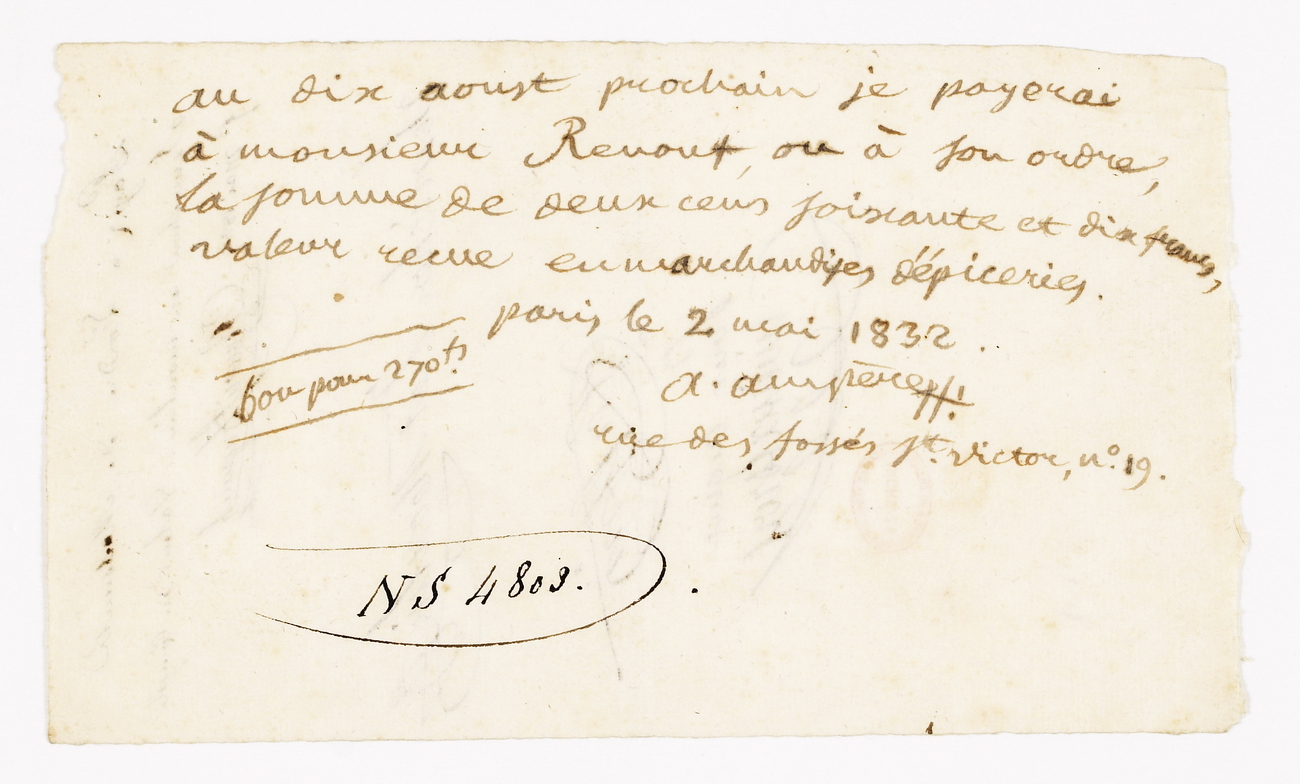 au dix aoust prochain je payerai
à monsieur Renouf, ou à son ordre,
la somme de deux cens soixante et dix francs,
valeur recue en marchandises d'épiceries.
paris le 2 mai 1832.
bon pour 270 fs.
a. ampère
rue des fossés st. victor, n.º 19.
NS 4803.